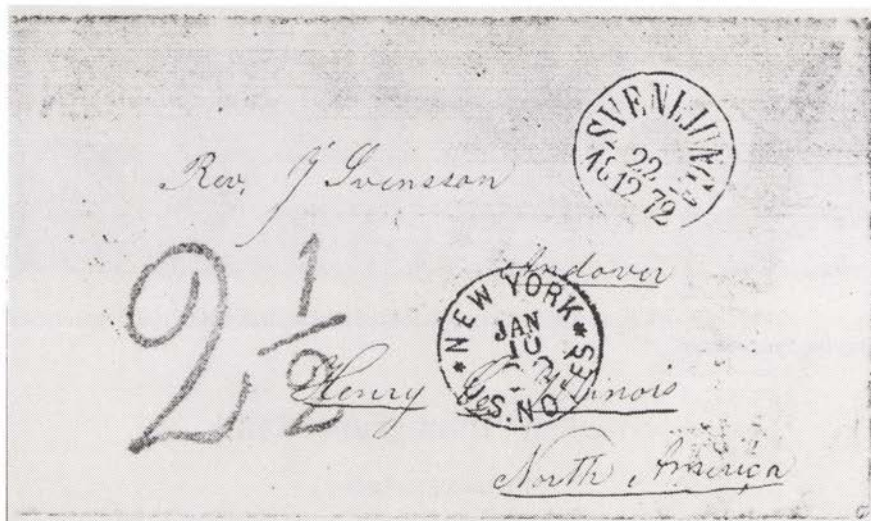 SVENLJUNGA
22
18 12 72
Rev. J Svensson
Andover
2 1/2
NEW YORK
JAN
10
U.S. NOTES
Henry Co Illinois
North America